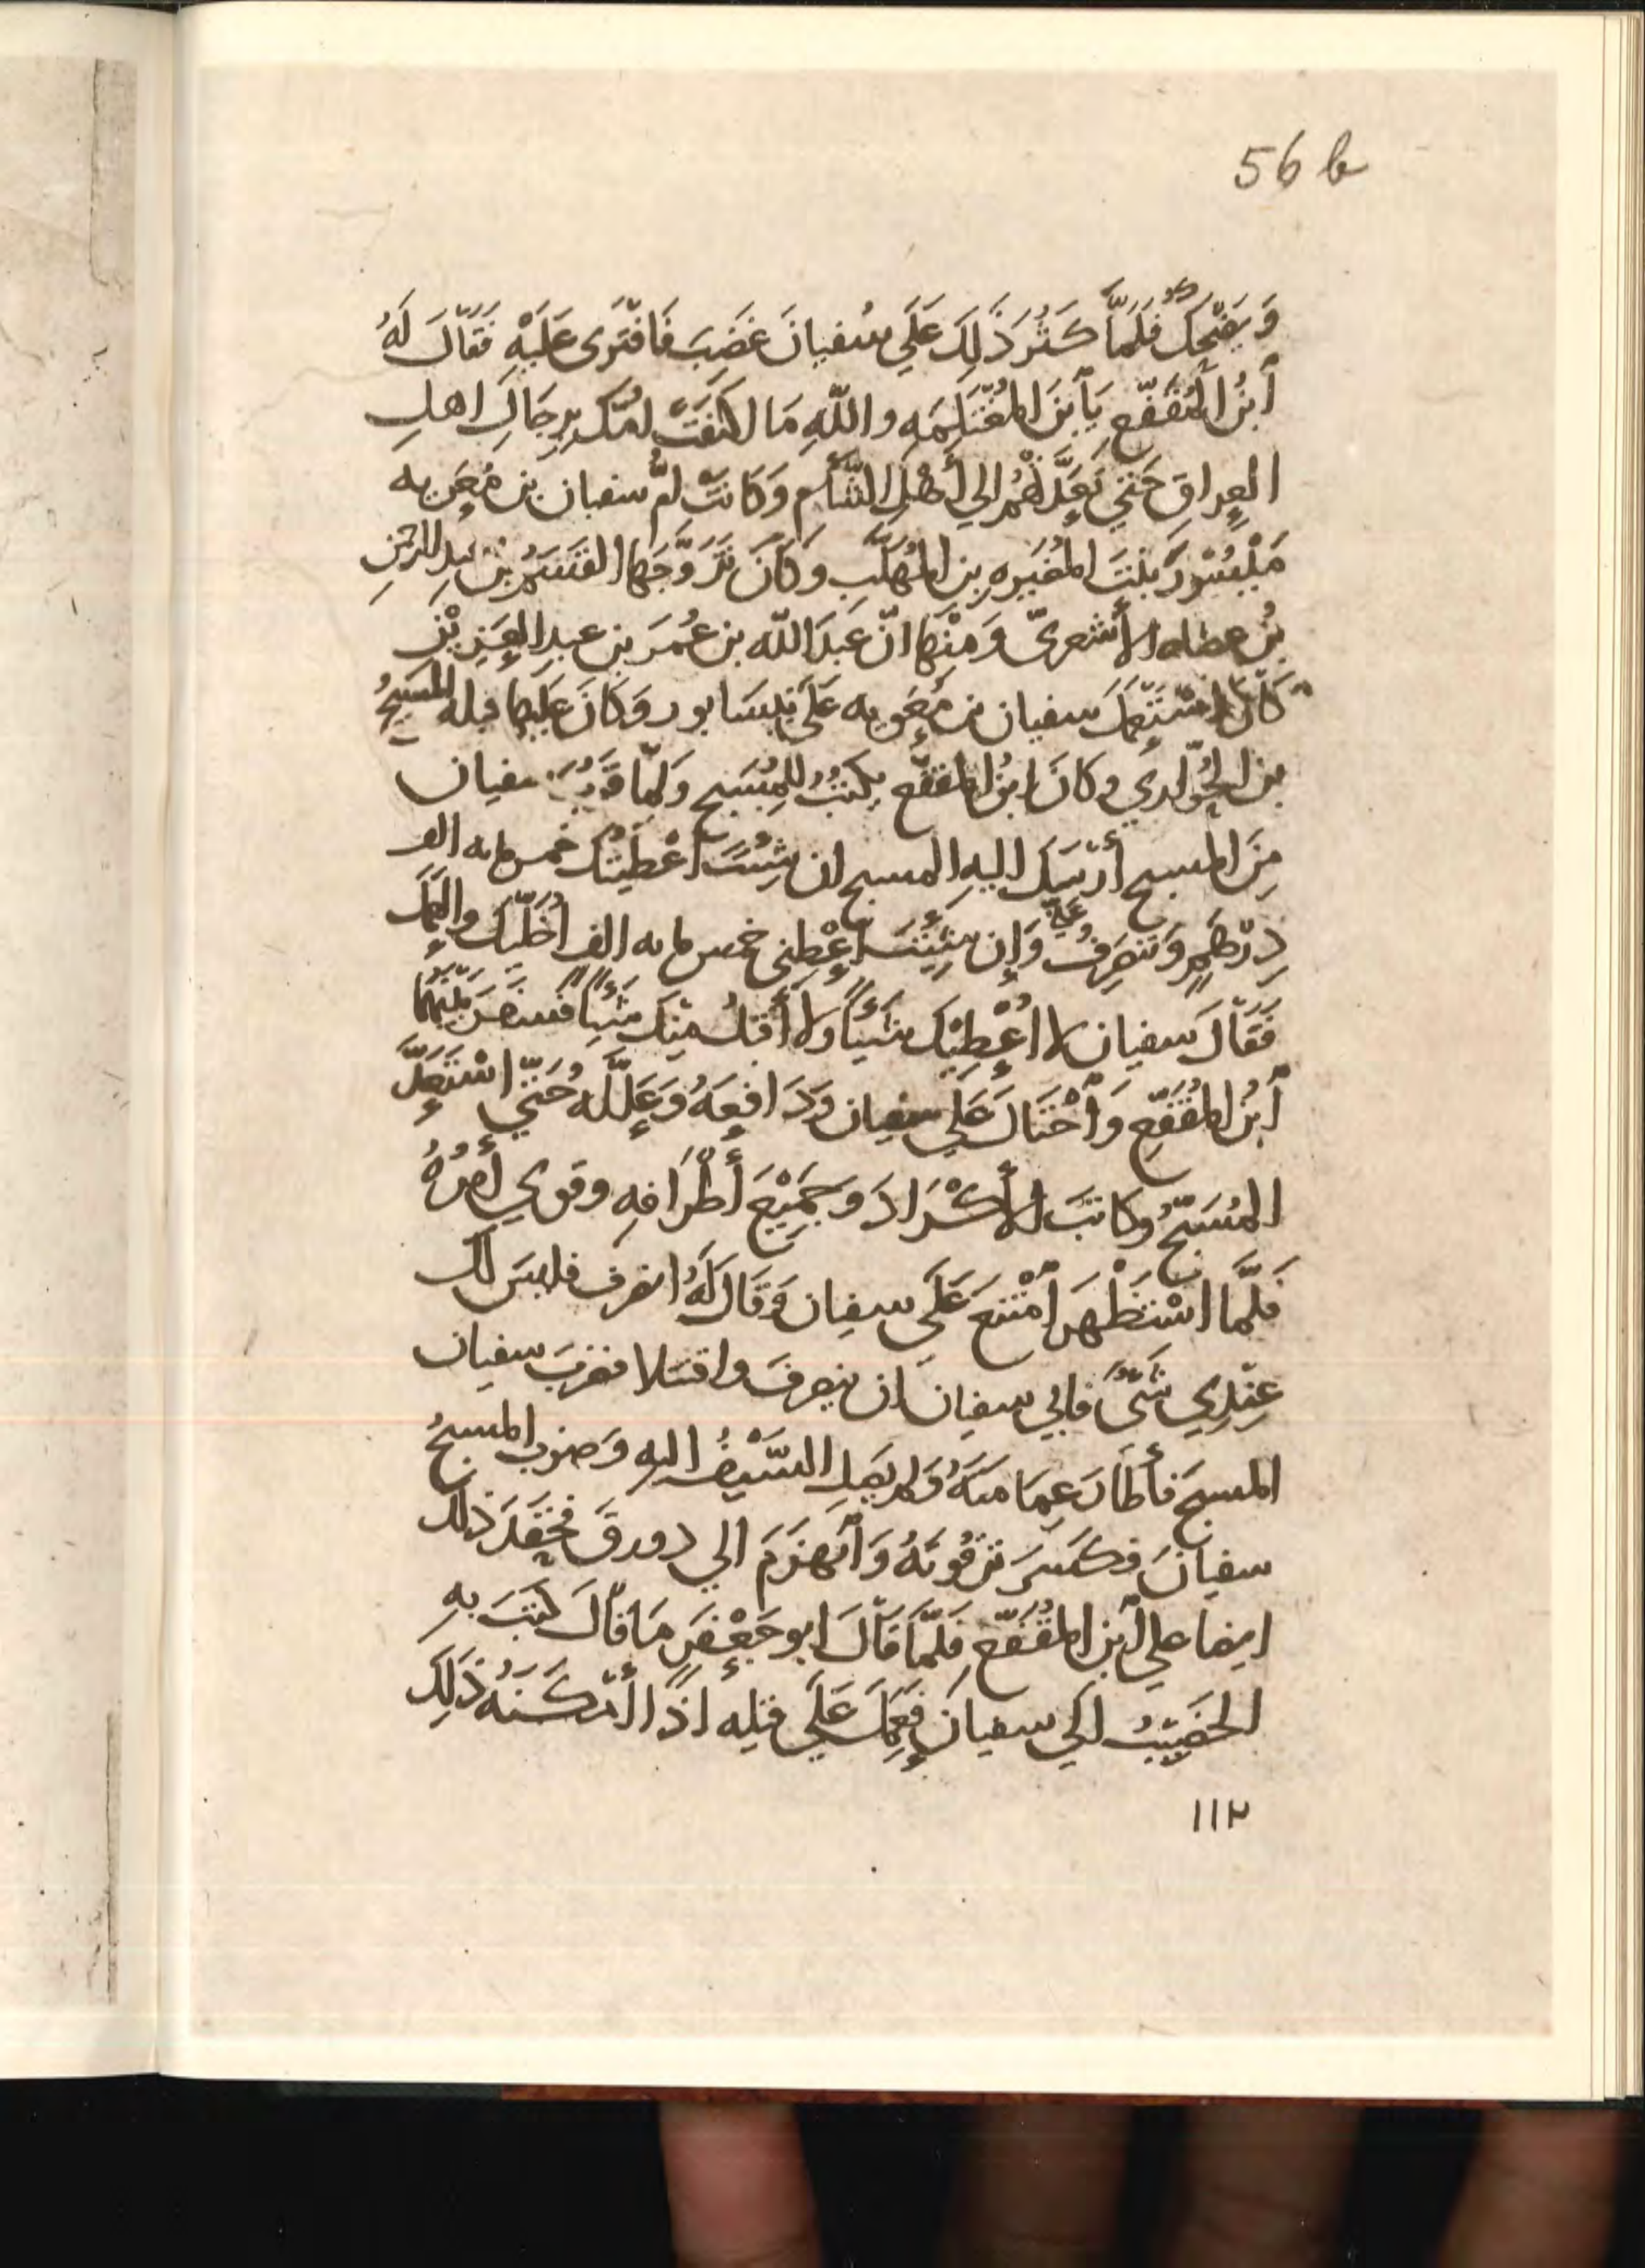 56 b
وَيَضْحَكُ فَلَمَّا كَثُرَ ذَلِكَ عَلَي سُفيانَ غَضِبَ فَافْتَرَى عَلَيْهِ فَقَالَ لَهُ
اَبْنُ المُقَفّع يَا اَبنَ المُغْتَلِمَه واللّهِ مَا اكتفَتْ امّك بِرِجَالِ اهلِ
العِراقِ حَتي تَعَدَّتْهُم الي أَهْلِ الشَّأم وَكَانَتْ امُّ سفيان بن مُعَويه
مَيْسُوْرَ بنتَ المُغيَرهِ بن المُهَلَّب وَكَانَ تَزَوَّجَها القسَمُ بن عبدِ الرحمٰنِ
بنُ عضاه الأَشعرىّ وَمِنْهَا انّ عَبدَ اللّه بن عُمَرَ بن عبدِ العَزِيْزِ
كَانَ اسْتَعْمَلَ سفيان بن مُعَويه عَلَي نيسَابور وَكَانَ عَلَيها قبله المُسَبِحُ
بن الحُوّاري وكانَ ابنُ المقفّع يكتُبُ للمُسَبح وَلمّا قَرُبَ سفيان
مِنَ المسبح أَرْسَلَ اليهِ المسبح ان شِئتَ أَعْطَيْتُك خمس مايه الف
دِرْهَمٍ وَتنصَرِفُ عني وَإن شِئْتَ اعْطِنى خمس مايه الف أُخَلّيك والعَمَل
فَقَالَ سفيان لا اُعْطِيْك شَيئًا ولا أَقبَلُ مِنك شَيئًا فسَفَرَ بَيْنَهُمَا
اَبنُ المُقَفّع وَاَحْتَالَ عَلَي سفيان وَدَافعَهُ وَعَلَّلَه حَتّي اسْتَعَدَّ
المُسَبّحُ وكاتَبَ الأَكْرَادَ وَجَمِيْعَ أَطْرَافِهِ وقوي أَمرُهُ
فَلَمَّا اسْتَظْهَرَ اَمْتَنَعَ عَلَي سفيان وَقَالَ لَهُ انصرف فليسَ لَك
عِنْدِي شَىٌ فابي سفيان ان ينصرفَ واقتتلا فضربَ سفيان
المسبحَ فأَطَارَ عِمَامتَهُ وَلم يَصِلِ السَّيْفُ اليهِ وَضرب المسبحُ
سفيانَ فكَسَرَ تَرقُوتَهُ وَاَنهزَمَ الي دورق فحَقَدَ ذلك
ايضا علي اَبن المُقَفّع فَلَمَّا قَالَ ابو جَعْفَرٍ مَا قَالَ كتَبَ بِهِ
الخَصِيْبُ الَي سفيان فعَمِلَ عَلَي قتلِه اذَا أَمْكَنَهُ ذَلِكَ
١١٢